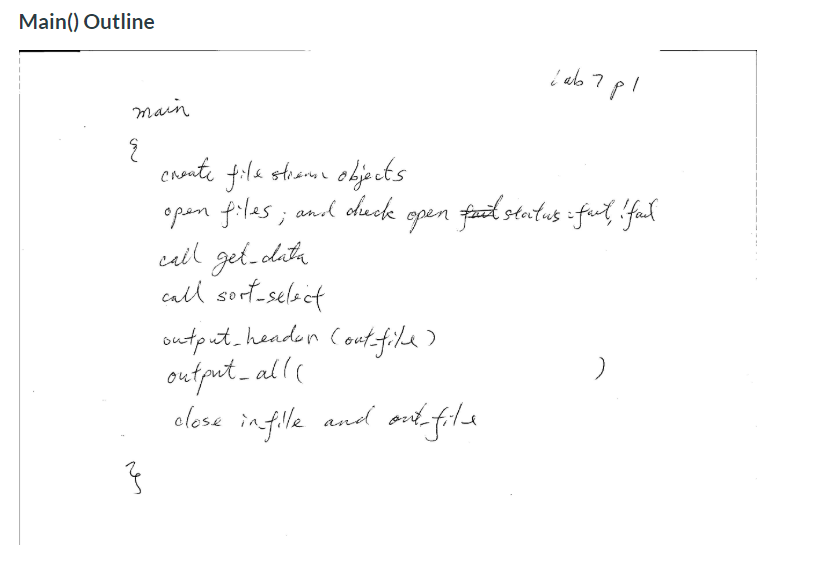 Main() Outline
lab 7 p1
main
{
create file stream objects
open files; and check open fail status = fail, !fail
call get_data
call sort_select
output_header (out_file)
output_all( )
close in_file and out_file
}